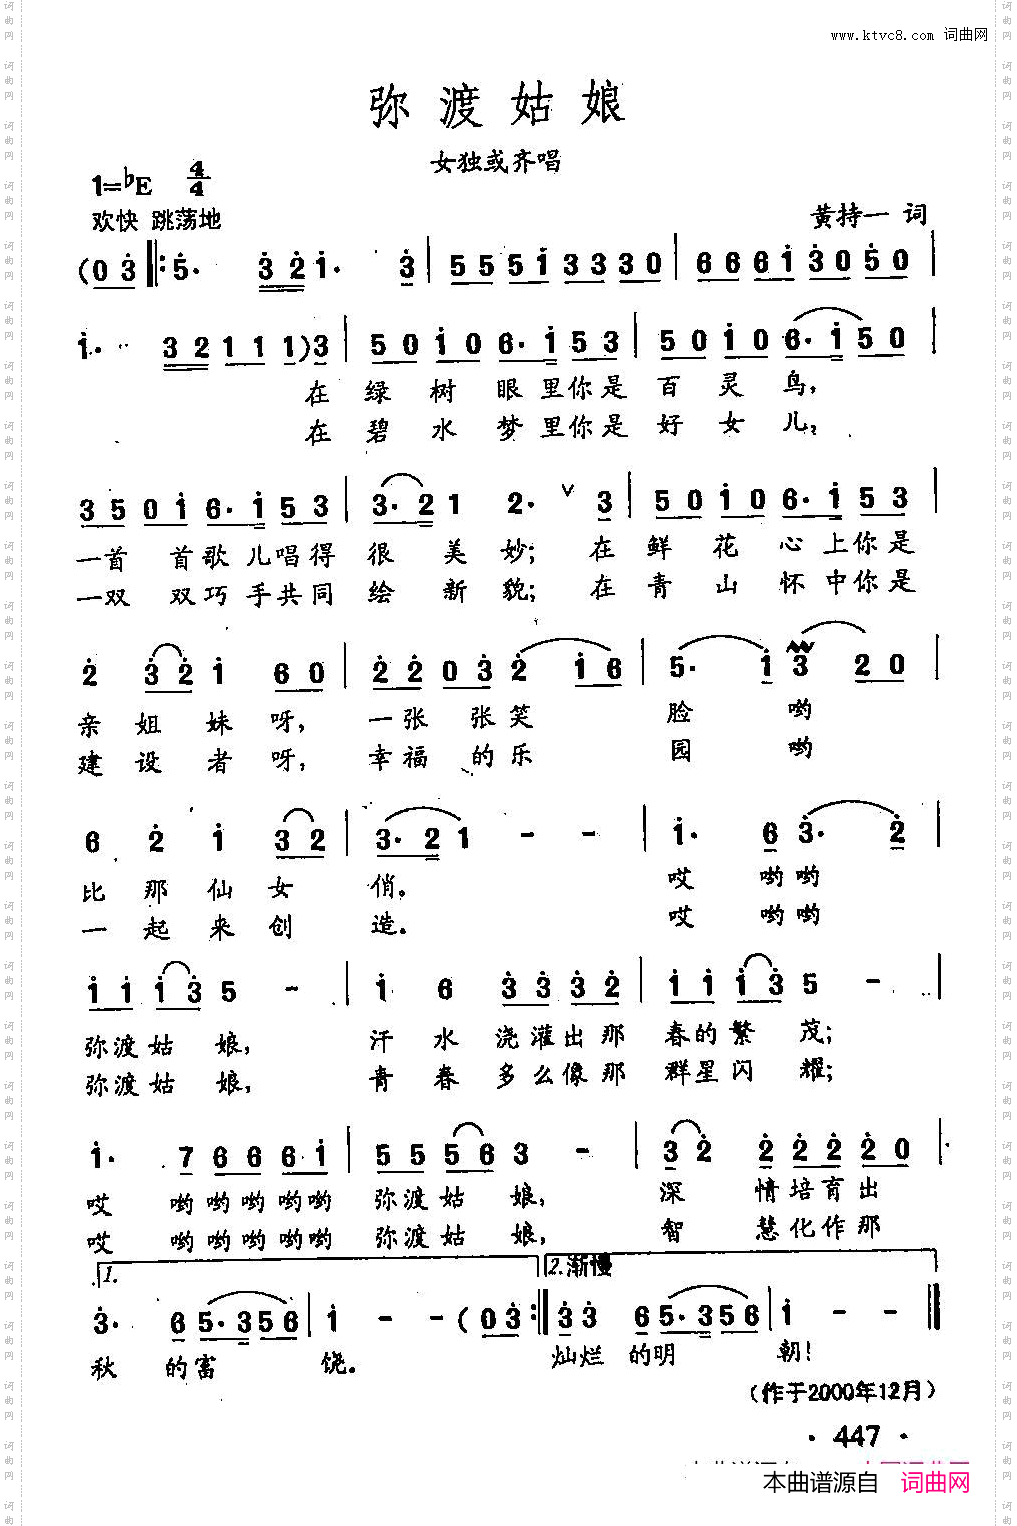 www.ktvc8.com 词曲网
弥渡姑娘
女独或齐唱
1=♭E 4/4
欢快 跳荡地
黄持一 词
(0 3 ‖: 5· 3 2 1· 3 | 5 5 5 1 3 3 3 0 | 6 6 6 1 3 0 5 0 |
1· 3 2 1 1 1 1) 3 | 5 0 1 0 6· 1 5 3 | 5 0 1 0 6· 1 5 0 |
在 绿 树 眼 里你是 百 灵 鸟,
在 碧 水 梦 里你是 好 女 儿,
3 5 0 1 6· 1 5 3 | 3· 2 1 2· ∨ 3 | 5 0 1 0 6· 1 5 3 |
一首 首歌儿唱得 很 美 妙; 在 鲜 花 心 上你是
一双 双巧手共同 绘 新 貌; 在 青 山 怀 中你是
2 3 2 1 6 0 | 2 2 0 3 2 1 6 | 5· 1 3 2 0 |
亲 姐 妹 呀, 一张 张笑 脸 哟
建 设 者 呀, 幸福 的乐 园 哟
6 2 1 3 2 | 3· 2 1 - - | 1· 6 3· 2 |
比 那 仙 女 俏。 哎 哟哟
一 起 来 创 造。 哎 哟哟
1 1 1 3 5 - | 1 6 3 3 3 2 | 1 1 1 3 5 - |
弥渡姑 娘, 汗 水 浇灌出那 春的繁 茂;
弥渡姑 娘, 青 春 多么像那 群星闪 耀;
1· 7 6 6 6 1 | 5 5 5 6 3 - | 3 2 2 2 2 0 |
哎 哟哟哟哟哟 弥渡姑 娘, 深 情培育出
哎 哟哟哟哟哟 弥渡姑 娘, 智 慧化作那
1. 2.渐慢
3· 6 5· 3 5 6 | 1 - - (0 3 :‖ 3 3 6 5· 3 5 6 | 1 - - ‖
秋 的富 饶。 灿烂 的明 朝!
(作于2000年12月)
· 447 ·
本曲谱源自 词曲网